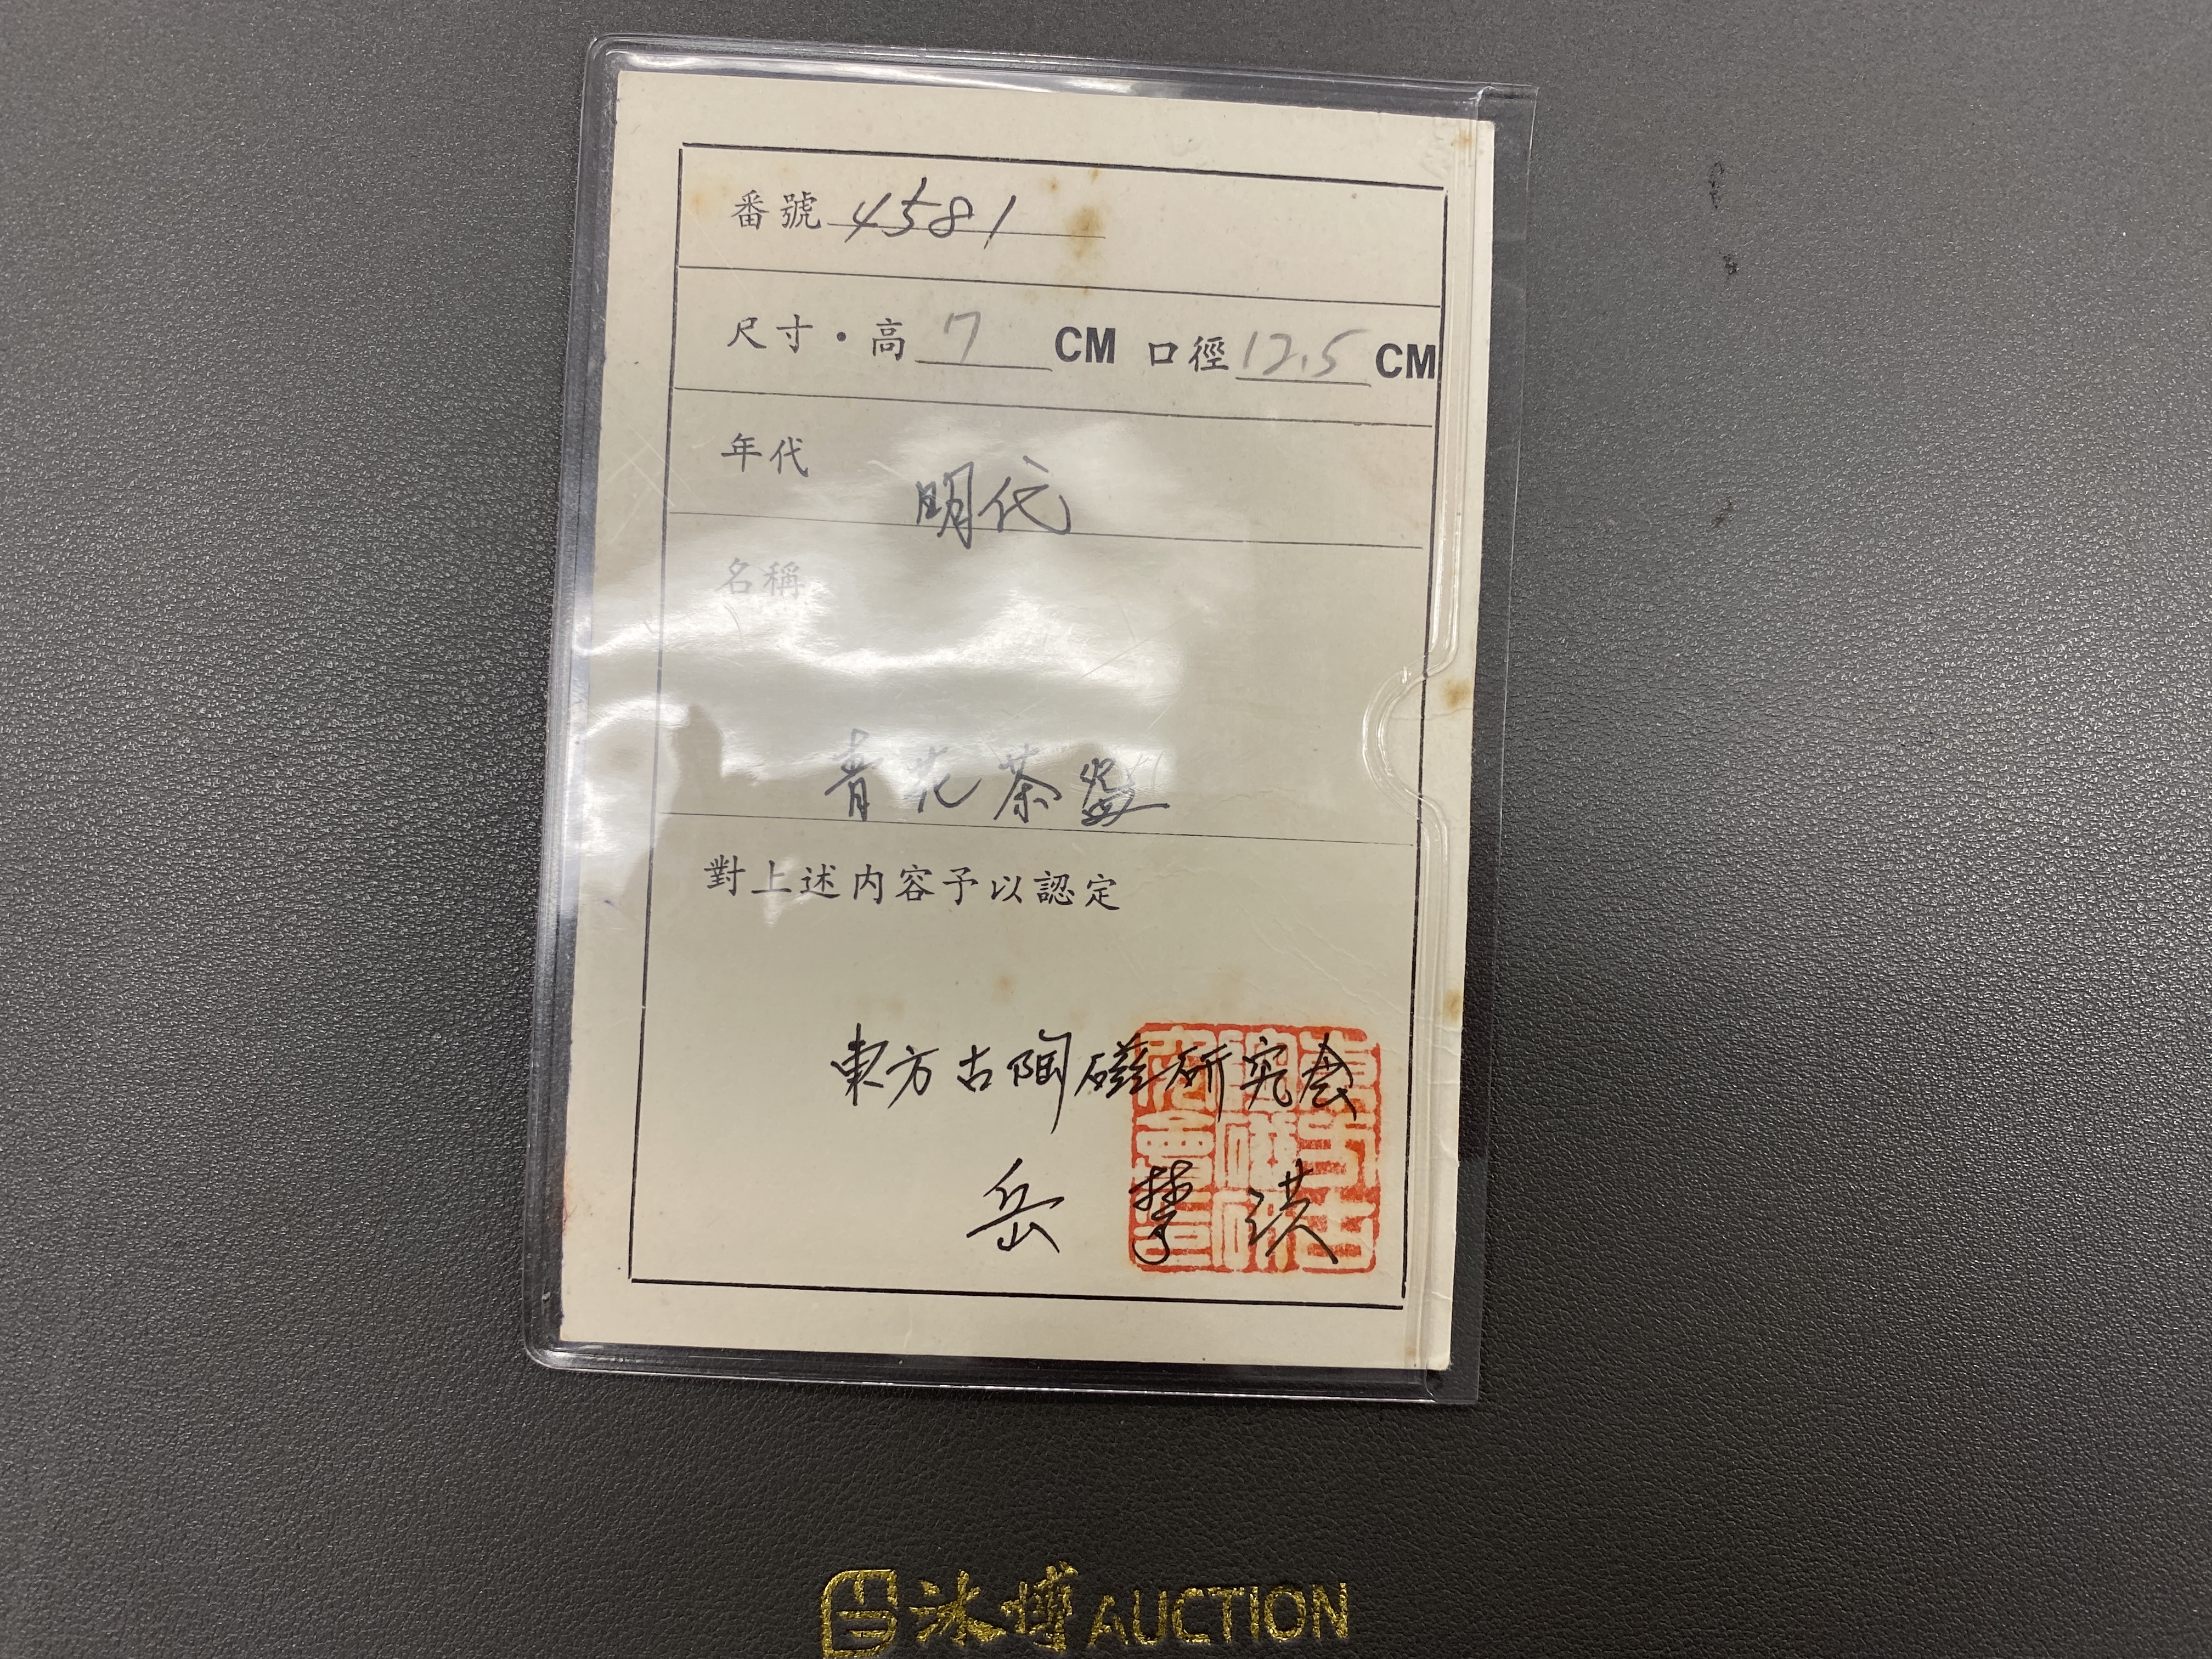 番號 4581
尺寸・高 7 CM 口徑 12.5 CM
年代
明代
名稱
青花茶盌
對上述内容予以認定
東方古陶磁研究会
岳 洪
AUCTION